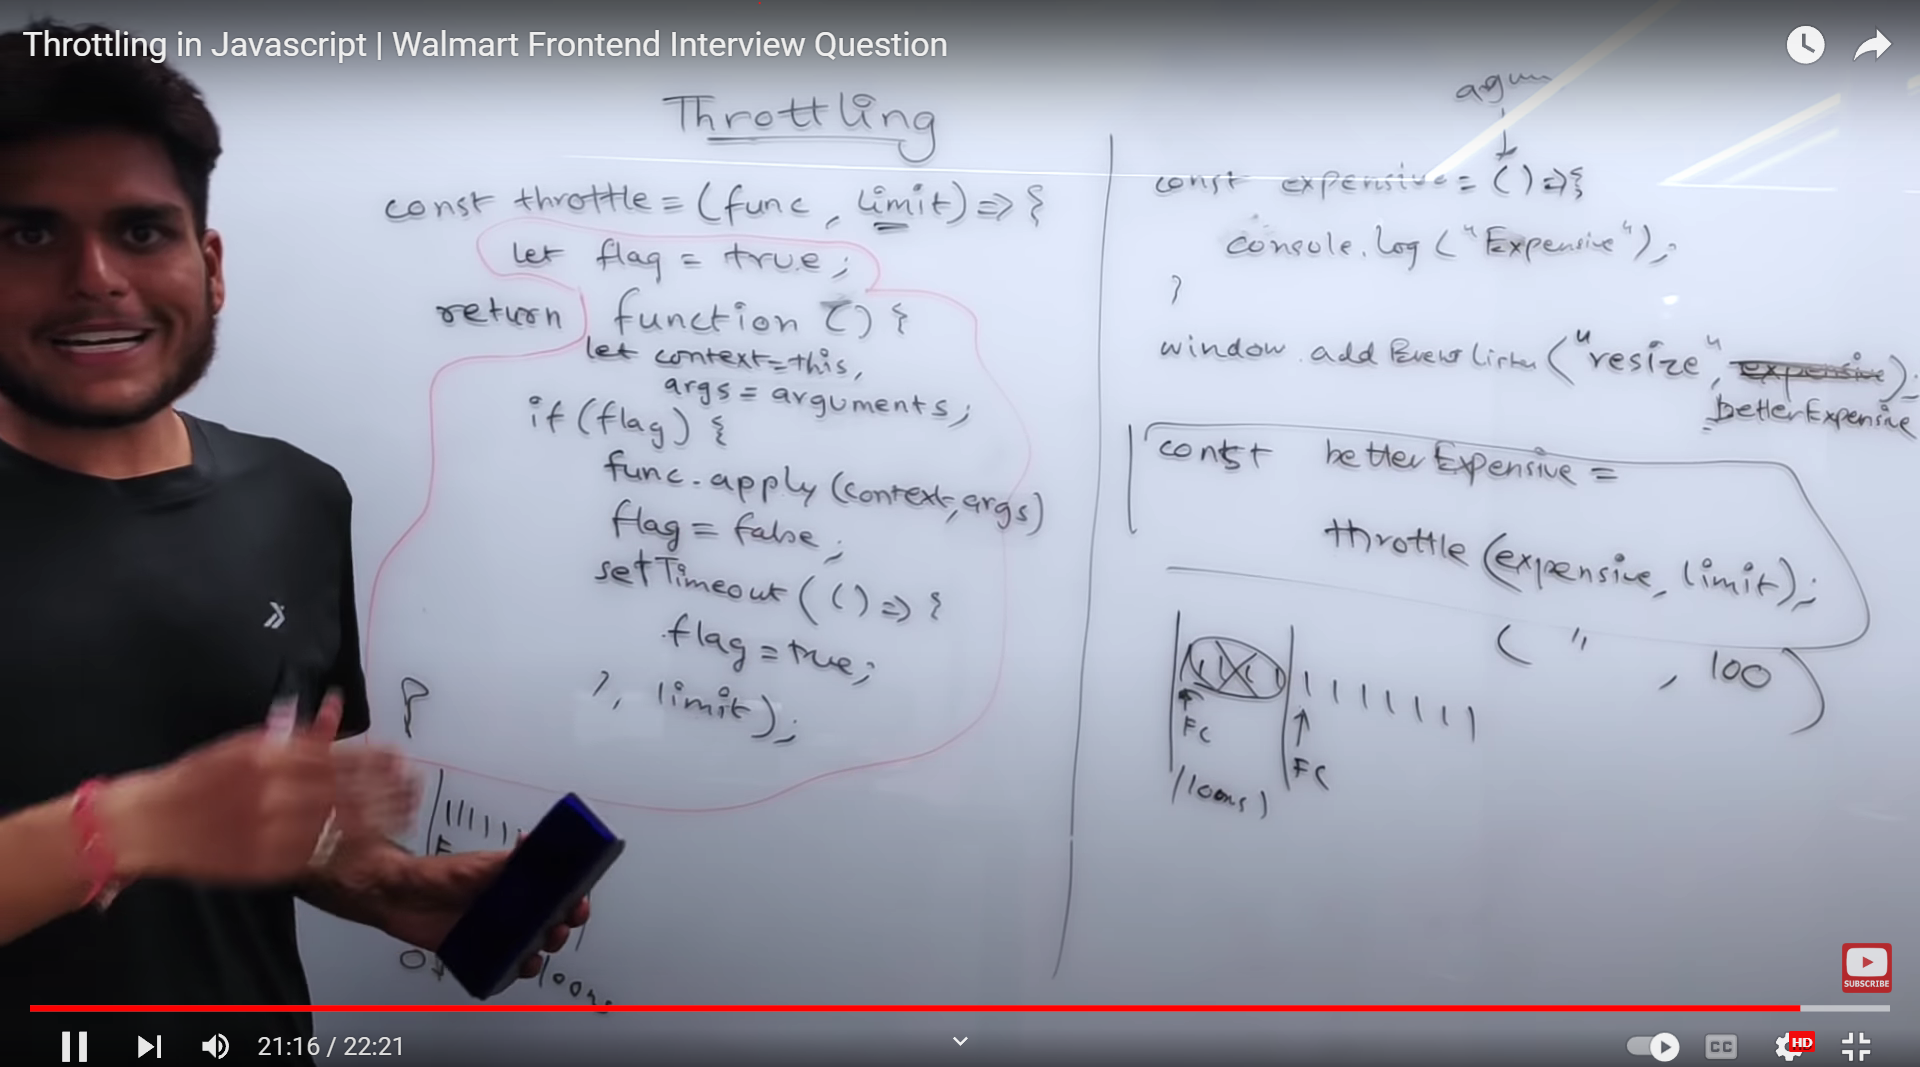 Throttling in Javascript | Walmart Frontend Interview Question
Throttling
const throttle = (func, limit) => {
let flag = true;
return function () {
let context = this,
args = arguments;
if (flag) {
func.apply(context, args)
flag = false;
setTimeout(() => {
flag = true;
}, limit);
}
FC
100ms
const expensive = () => {
console.log("Expensive");
}
window.addEventListner("resize", expensive);
betterExpensive
const betterExpensive =
throttle(expensive, limit);
( " , 100)
FC
FC
(100ms)
SUBSCRIBE
21:16 / 22:21
CC
HD